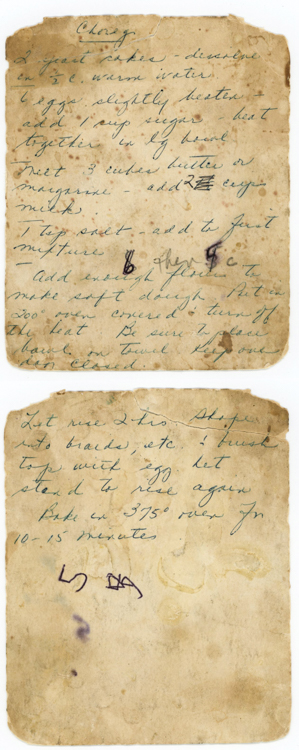 Choreg
2 yeast cakes - dissolve
in ½ c. warm water
6 eggs, slightly beaten -
add 1 cup sugar - beat
together in lg bowl
Melt 3 cubes butter or
margarine - add 2 cups
milk
1 tsp salt - add to first
mixture
6 then 5 c
Add enough flour to
make soft dough Put in
200° oven covered - turn off
the heat Be sure to place
bowl on towel Keep oven
door closed.
Let rise 2 hrs. Shape
into braids, etc. & brush
top with egg let
stand to rise again
Bake in 375° oven for
10-15 minutes
5